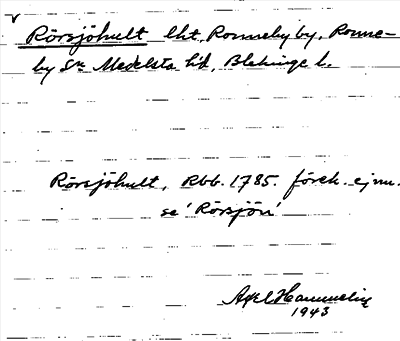 v
Rörsjöhult lht, Ronneby by, Ronne-
by Sn Medelsta hd, Blekinge l.
Rörsjöhult, Rbb. 1785. förek. ej nu.
se 'Rörsjön'
Axel Hammelin
1943